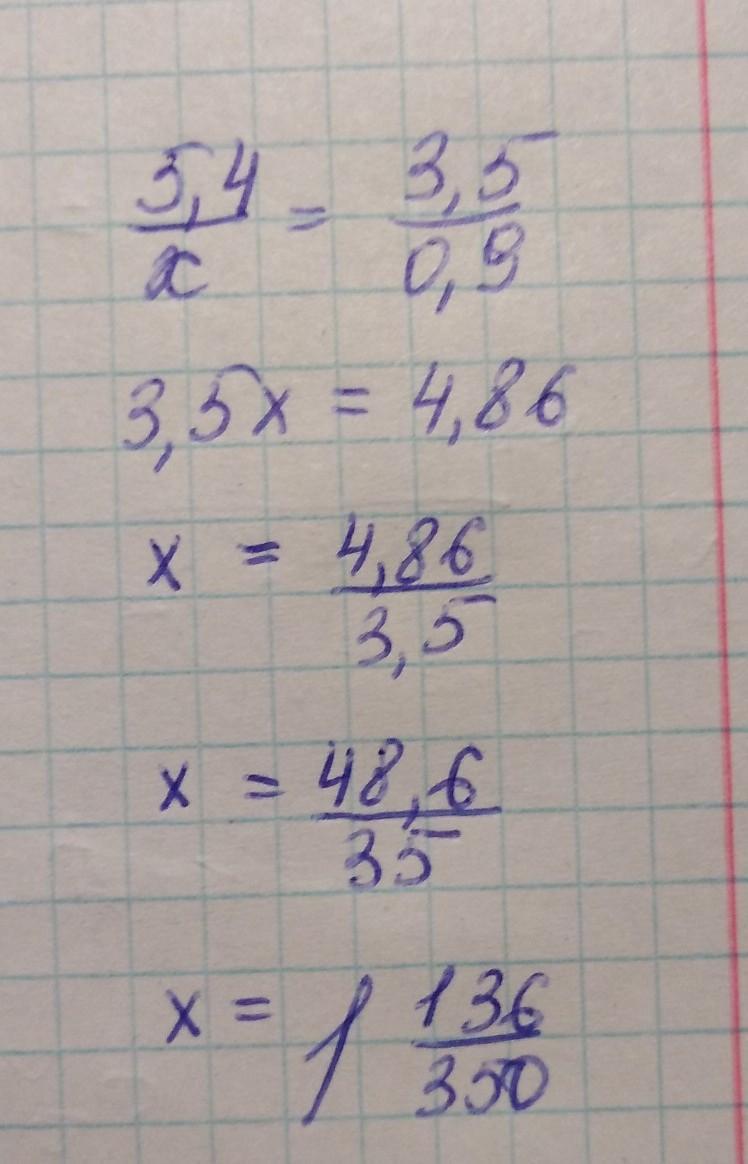 5,4/x = 3,5/0,9
3,5x = 4,86
x = 4,86/3,5
x = 48,6/35
x = 1 136/350